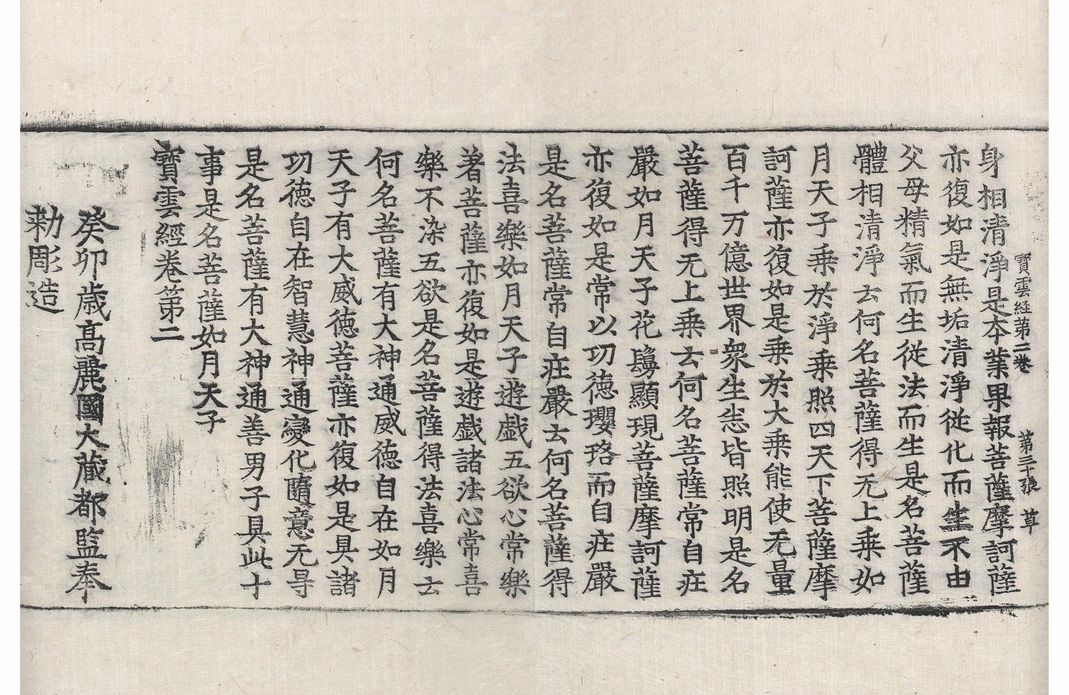 寶雲経第二卷　第三十張　草
身相清淨是夲業果報菩薩摩訶薩
亦復如是無垢清淨從化而生不由
父母精氣而生從法而生是名菩薩
體相清淨云何名菩薩得无上乘如
月天子乘於淨乘照四天下菩薩摩
訶薩亦復如是乘於大乘能使无量
百千万億世界衆生悉皆照明是名
菩薩得无上乘云何名菩薩常自㽵
嚴如月天子花鬘顯現菩薩摩訶薩
亦復如是常以功德瓔珞而自㽵嚴
是名菩薩常自㽵嚴云何名菩薩得
法喜樂如月天子遊戲五欲心常樂
著菩薩亦復如是遊戲諸法心常喜
樂不染五欲是名菩薩得法喜樂云
何名菩薩有大神通威德自在如月
天子有大威德菩薩亦復如是具諸
功德自在智慧神通變化隨意无㝵
是名菩薩有大神通善男子具此十
事是名菩薩如月天子
寶雲經卷第二
癸卯歳高麗國大藏都監奉
勅彫造